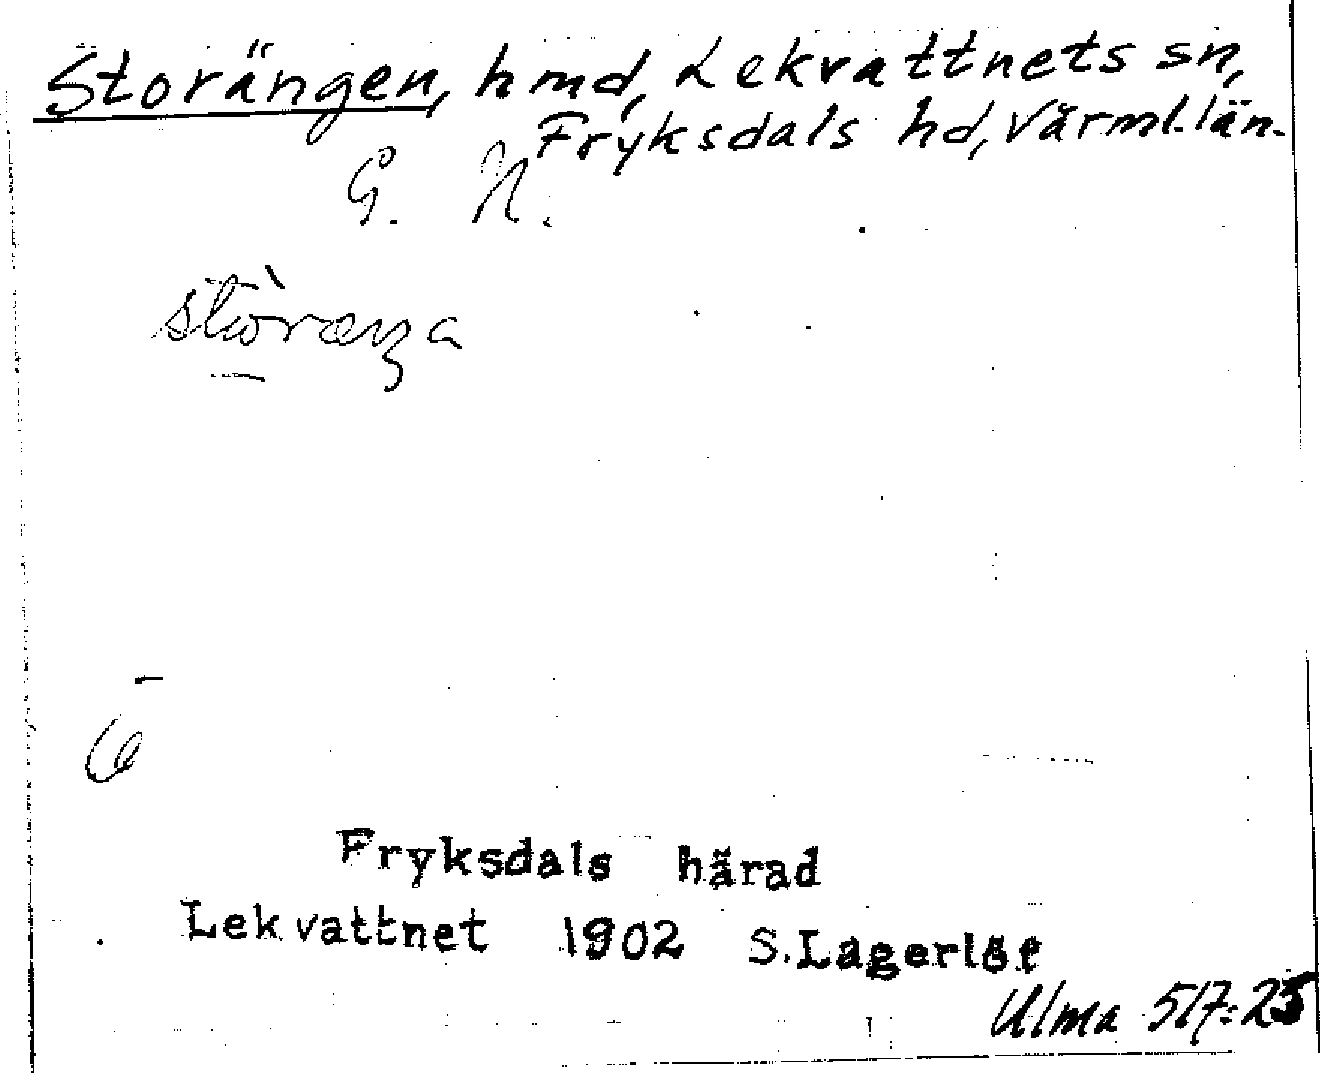 Storängen, hmd, Lekvattnets sn,
Fryksdals hd, Värml. län.
G. N.
Fryksdals härad
Lekvattnet 1902 S. Lagerlöf
Ulma 517:25